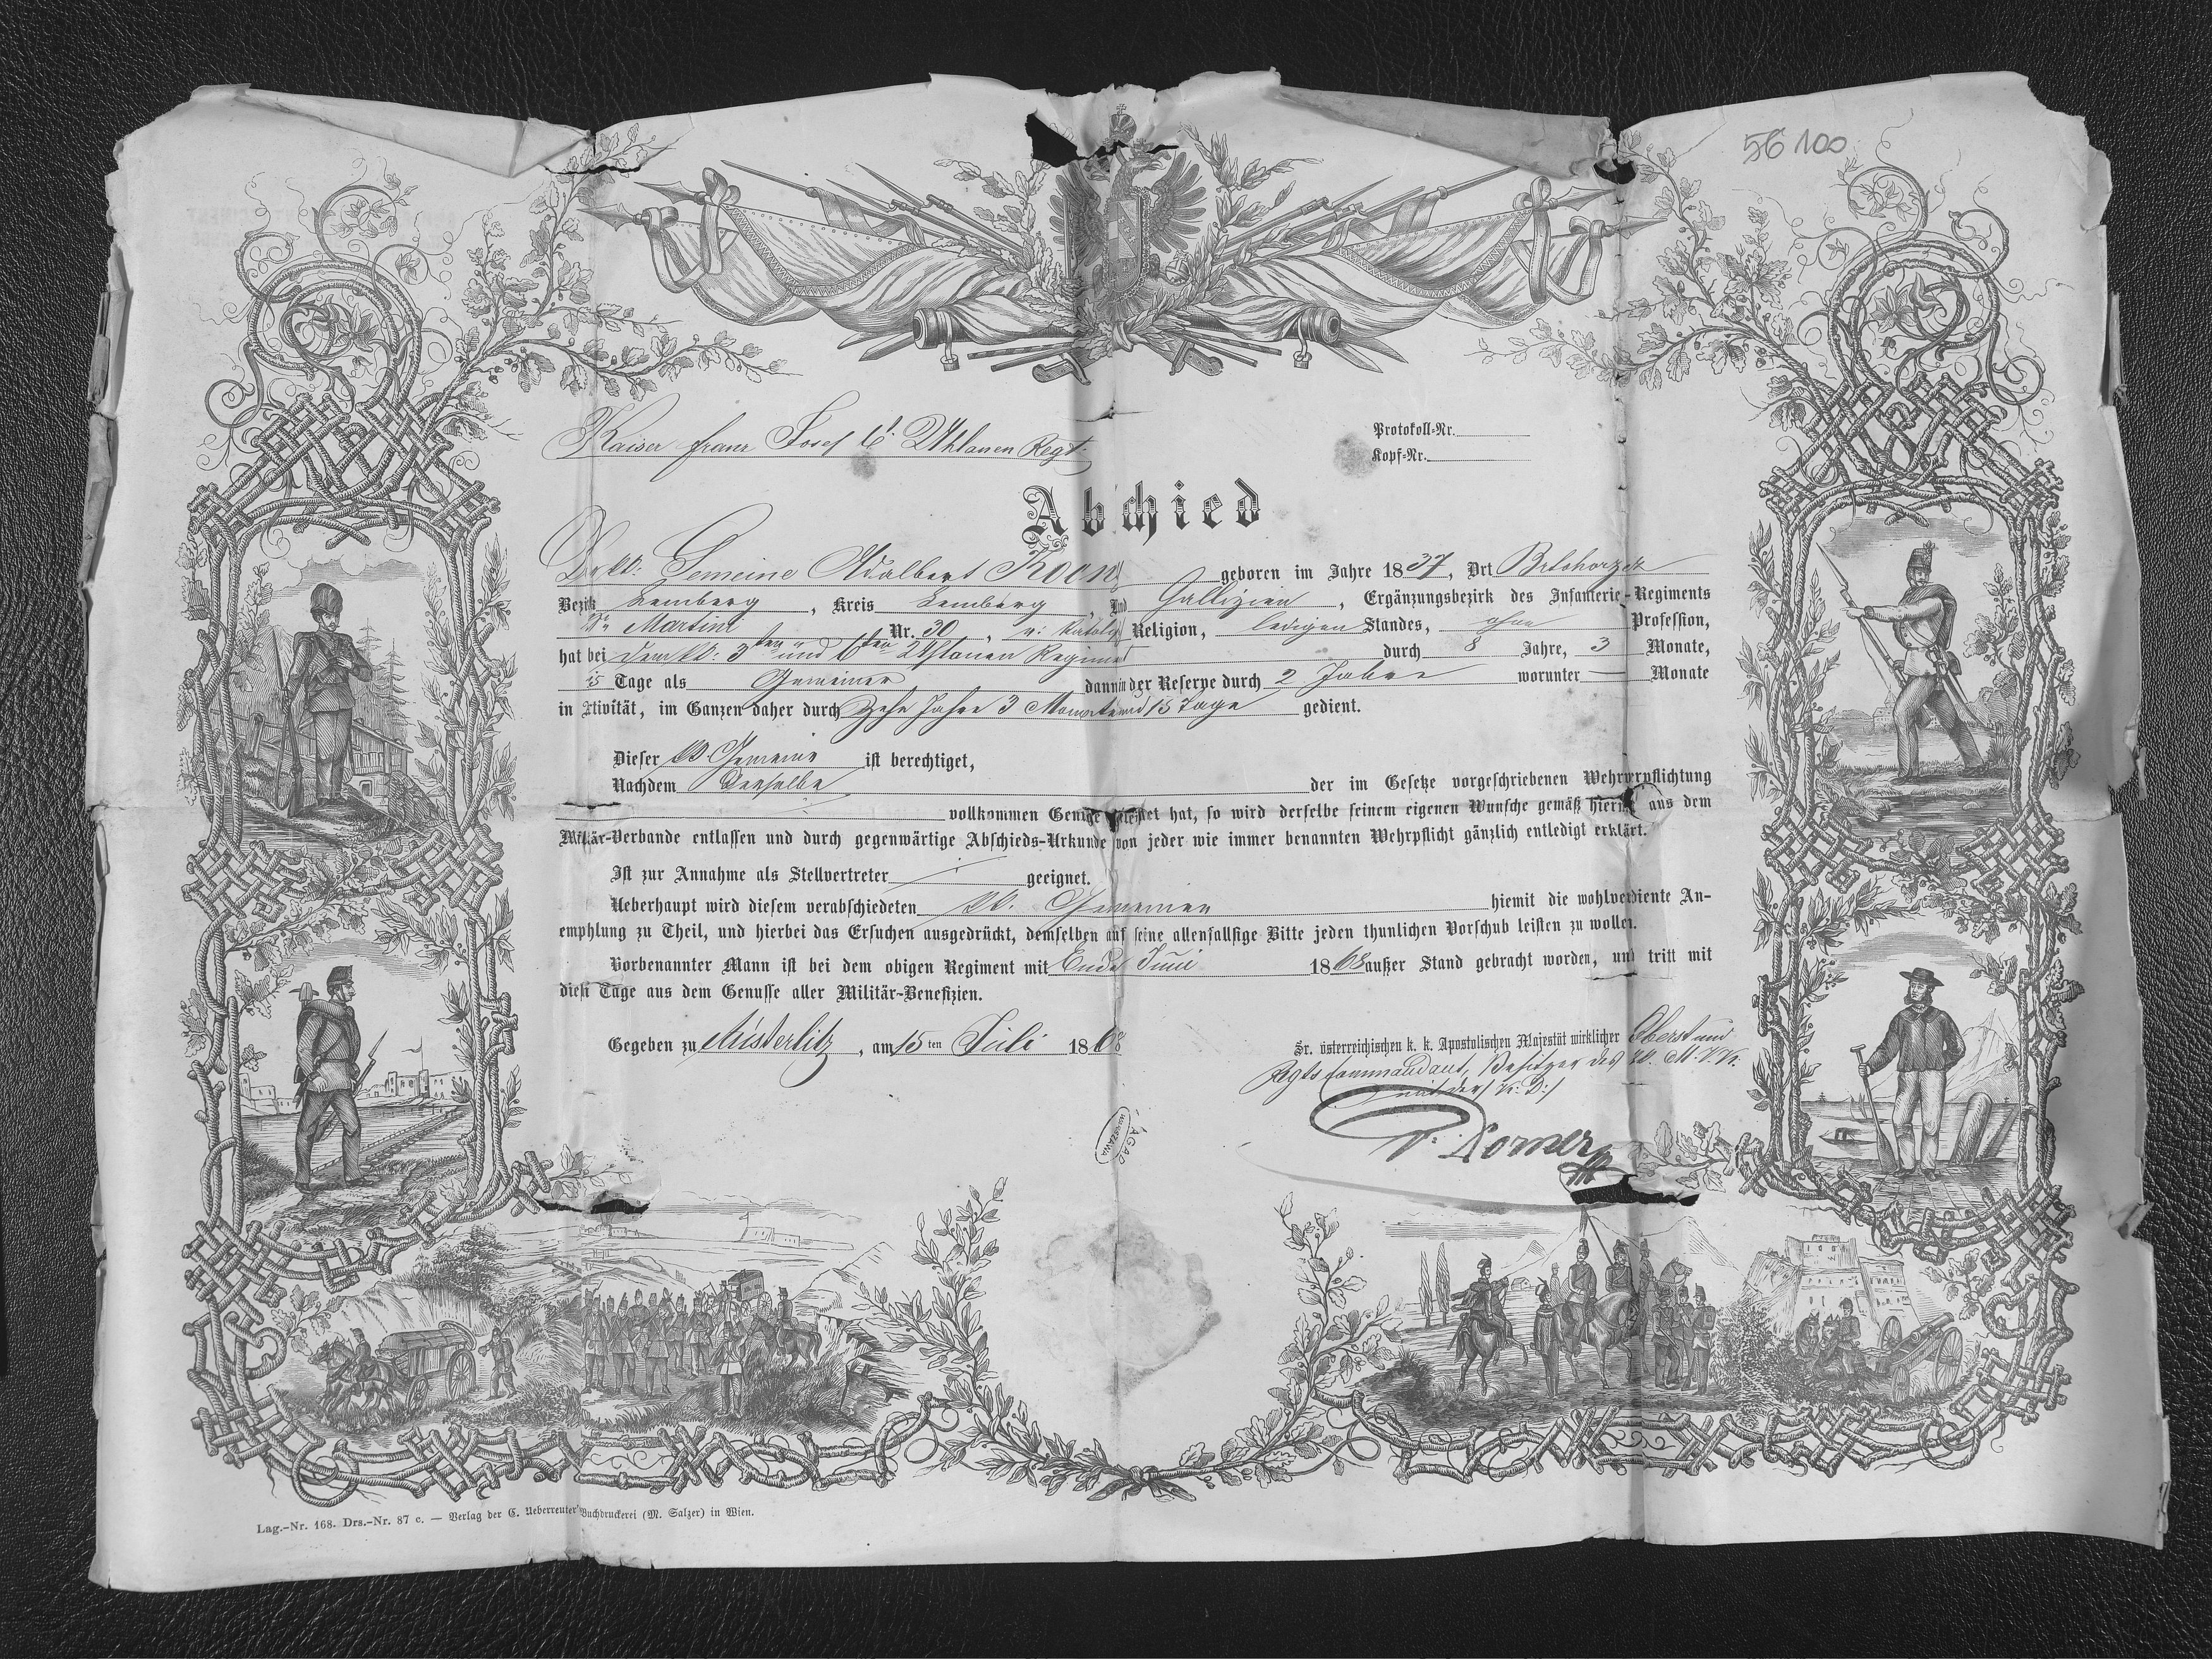 56100
Kaiser Franz Josef 6t. Uhlanen Regt.
Protokoll-Nr.
Kopf-Nr.
Abschied
Gemeine Adalbert geboren im Jahre 1837, Ort
Bezirk Lemberg, Kreis Lemberg, Land Gallizien, Ergänzungsbezirk des Infanterie-Regiments
Martini Nr. 30, r: kathol Religion, ledigen Standes, ohne Profession,
hat bei dem 3ten und 6ten Uhlanen Regiment durch 8 Jahre, 3 Monate,
15 Tage als Gemeiner dann in der Reserve durch 2 Jahre worunter — Monate
in Activität, im Ganzen daher durch Zehn Jahre 3 Monate und 15 Tage gedient.
Dieser Gemeine ist berechtiget,
Nachdem Derselbe der im Gesetze vorgeschriebenen Wehrverpflichtung
vollkommen Genüge geleistet hat, so wird derselbe seinem eigenen Wunsche gemäß hiermit aus dem
Militär-Verbande entlassen und durch gegenwärtige Abschieds-Urkunde von jeder wie immer benannten Wehrpflicht gänzlich entledigt erklärt.
Ist zur Annahme als Stellvertreter geeignet.
Ueberhaupt wird diesem verabschiedeten Gemeinen hiemit die wohlverdiente An-
empfhlung zu Theil, und hierbei das Ersuchen ausgedrückt, demselben auf seine allenfallsige Bitte jeden thunlichen Vorschub leisten zu wollen.
Vorbenannter Mann ist bei dem obigen Regiment mit Ende Juni 1868 außer Stand gebracht worden, und tritt mit
diesem Tage aus dem Genusse aller Militär-Benefizien.
Gegeben zu Austerlitz, am 15ten Juli 1868
Sr. österreichischen k. k. Apostolischen Majestät wirklicher Oberst und
Regts Commandant, Besitzer des M. V. K.
mit der K: D:
AGAD
WARSZAWA
Lag.-Nr. 168. Drs.-Nr. 87 c. — Verlag der C. Ueberreuter'schen Buchdruckerei (M. Salzer) in Wien.